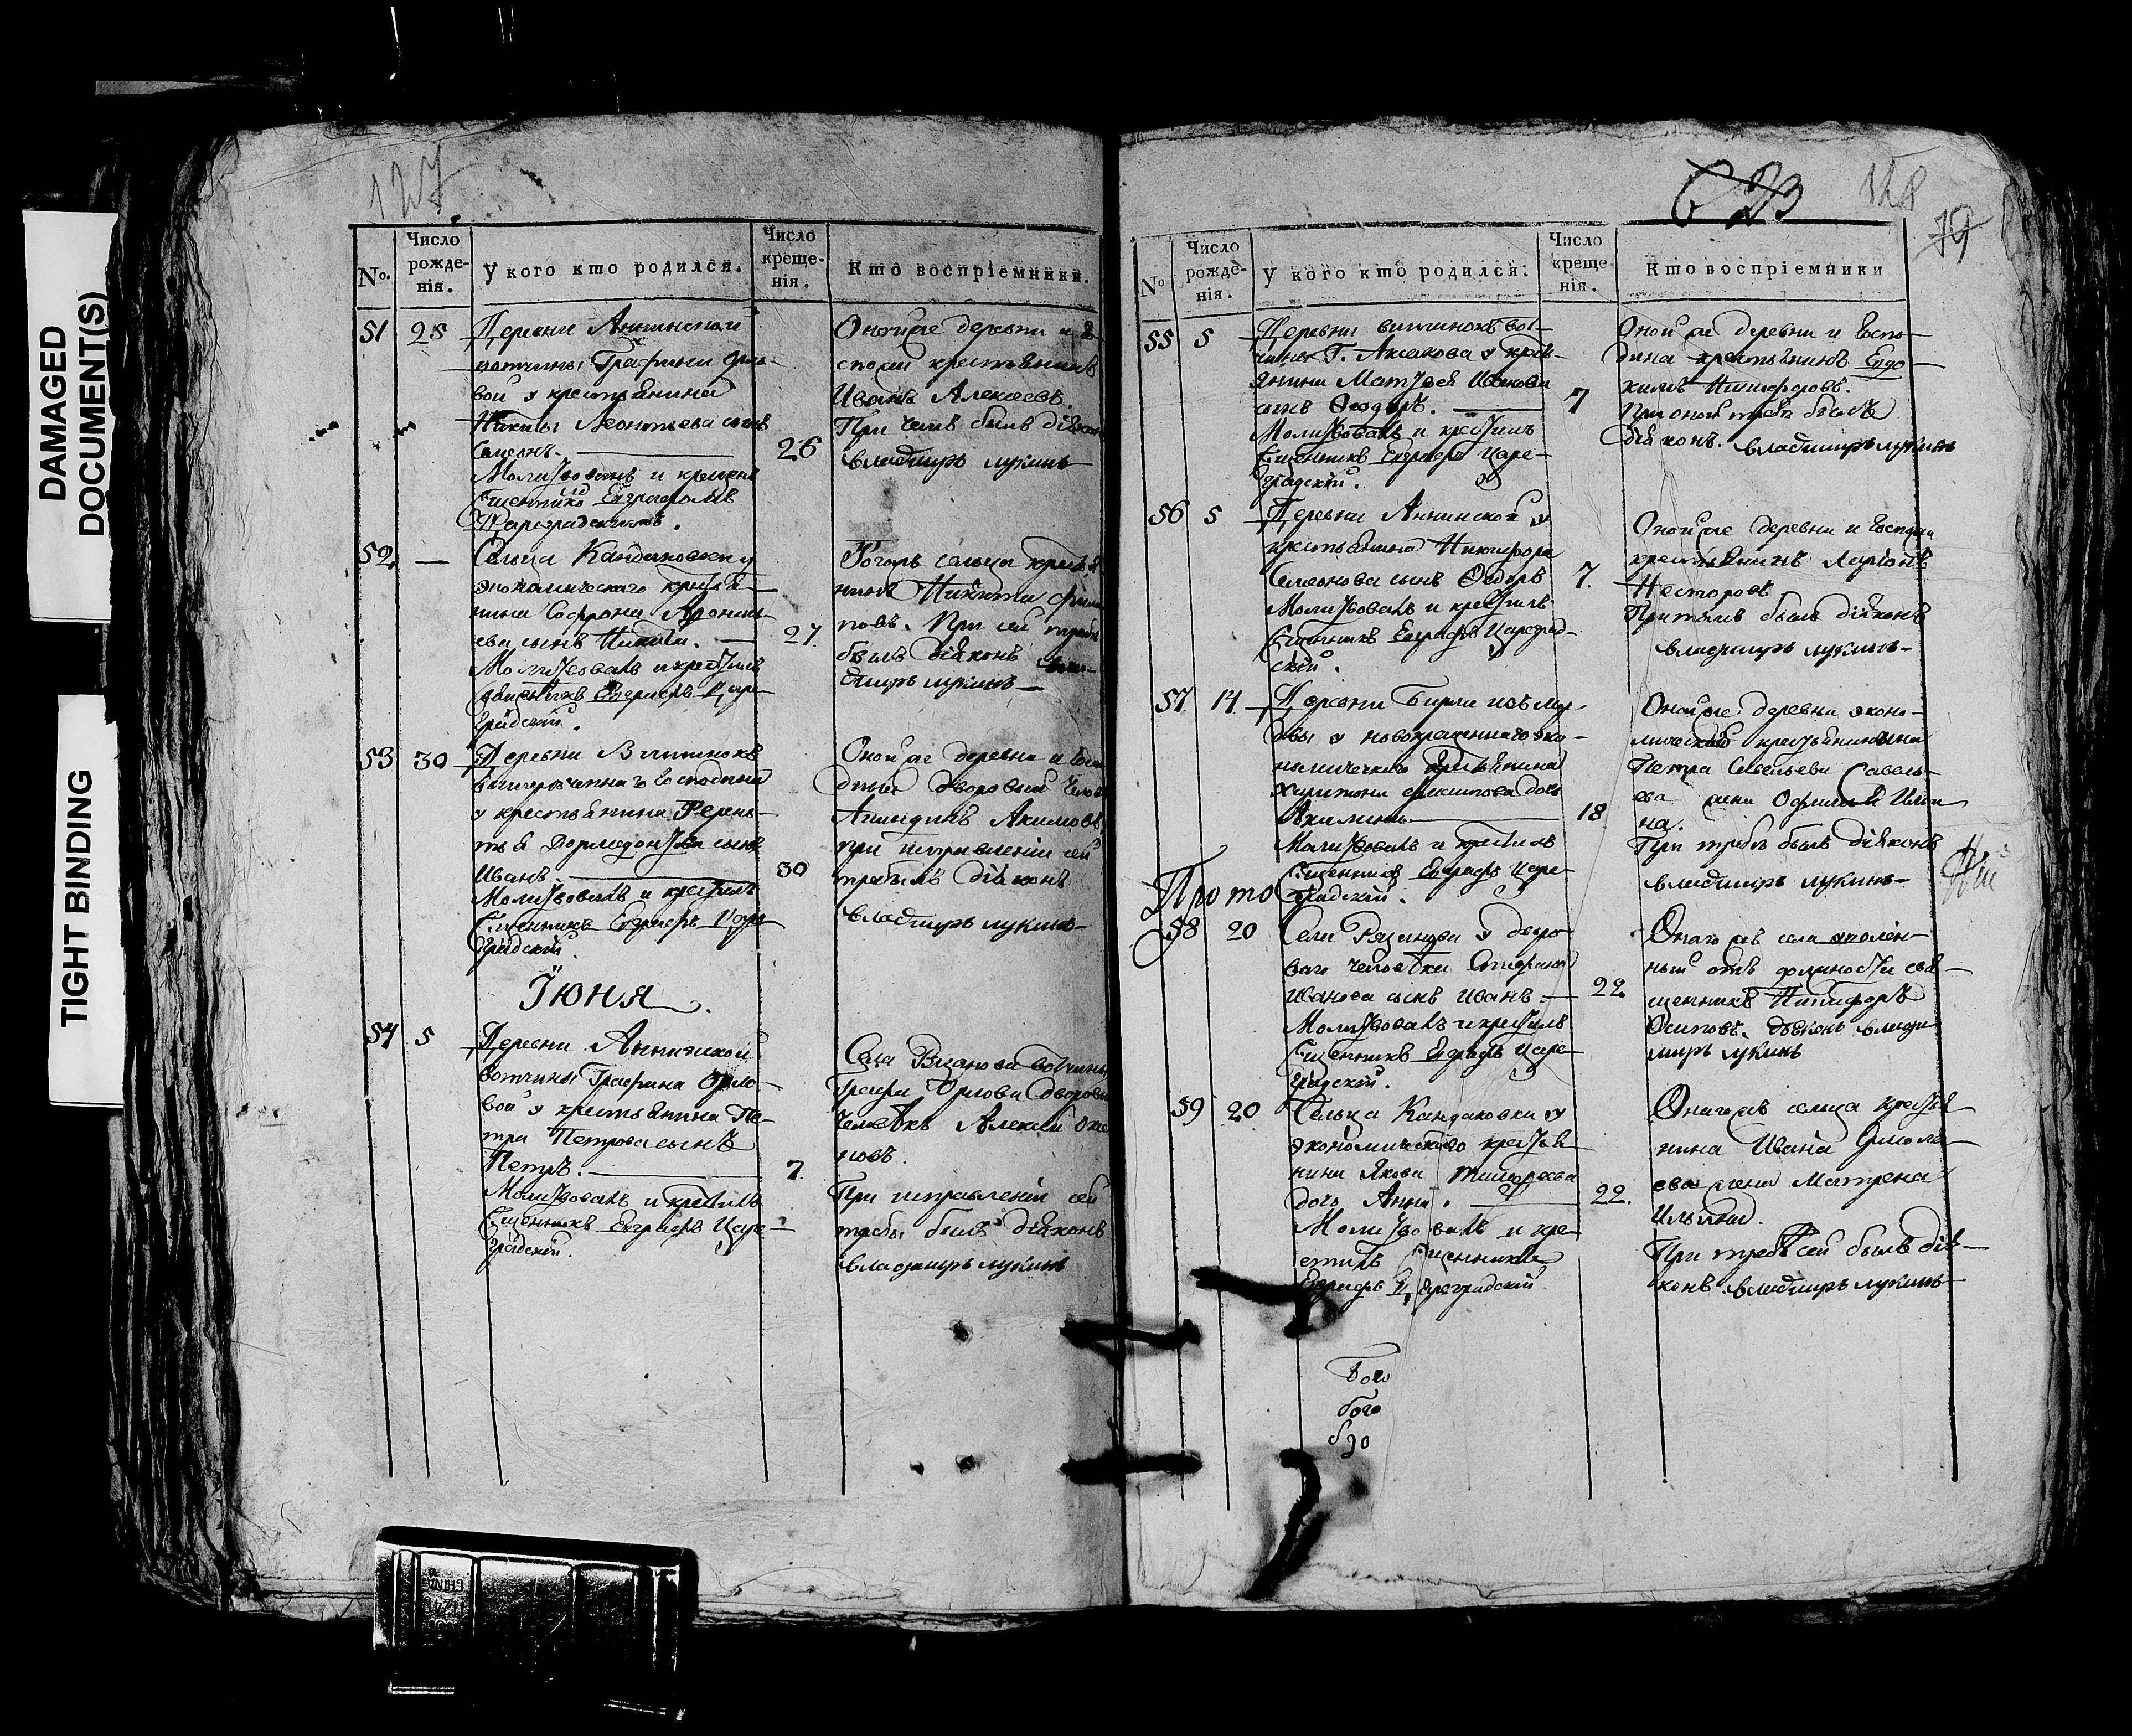 DAMAGED
DOCUMENT(S)
TIGHT BINDING
127
№.
Число
рожде-
нія.
У кого кто родился.
Число
креще-
нія.
Кто воспріемники.
51
25
Деревни Аннинской
вотчины Графини Орло-
вой у крестьянина
Никиты Леонтьева сынъ
Симеонъ.
Молитвованъ и крещенъ
Священникомъ Евграфомъ
Цареградскимъ.
26
Оной же деревни и го-
спожи крестьянинъ
Иванъ Алексеевъ.
При чемъ былъ діяконъ
владимиръ лукинъ
52
—
Сельца Кандаковки у
экономическаго крестья-
нина Софрона
сынъ Никита.
Молитвовалъ и крестилъ
священникъ Евграфъ Царе-
градскій.
27
Тогожъ сельца крестья-
нинъ Никита
При сей требе
былъ діяконъ вла-
димиръ лукинъ
53
30
Деревни
вышеречченнаго Господина
у крестьянина Терень-
тья сынъ
Иванъ.
Молитвовалъ и крестилъ
Священникъ Евграфъ Царе-
градскій.
30
Оной же деревни и госпо-
дина дворовый челов
Акимовъ
при исправленіи сей
требылъ діяконъ
владимиръ лукинъ
Іюня.
54
5
Деревни Аннинской
вотчины Графини Орло-
вой у крестьянина Пе-
тра Петрова сынъ
Петръ.
Молитвовалъ и крестилъ
Священникъ Евграфъ Царе-
градскій.
7
Села Рязанова вотчины
Графа Орлова дворовый
человѣкъ Алексей
новъ.
При исправленіи сей
требы былъ діяконъ
владимиръ лукинъ
623
128
79
№
Число
рожде-
нія.
У кого кто родился.
Число
креще
нія.
Кто воспріемники
55
5
Деревни вот-
чины Г. Аксакова у кресть-
янина Матвея Иванова
сынъ Феодоръ.
Молитвовалъ и крестилъ
Священникъ Евграфъ Царе-
градскій.
7
Оной же деревни и госпо-
дина крестьянинъ Евдо-
кимъ Никифоровъ.
При оной требе былъ
діяконъ. владимиръ лукинъ
56
5
Деревни Аннинской у
крестьянина Никифора
Симеонова сынъ Федоръ
Молитвовалъ и крестилъ
Священникъ Евграфъ Цареград-
скій.
7.
Оной же деревни и госпожи
крестьянинъ Ларіонъ
Несторовъ
При томъ былъ діяконъ
владимиръ лукинъ
57
14
Деревни Бирли изъ мор-
двы у новокрещеннаго эко-
номическаго крестьянина
Харитона дочь
Акилина
Молитвовалъ и крестилъ
Священникъ Евграфъ Царе-
градскій.
18
Оной же деревни эконо-
мическаго крестьянина
Петра Савельева Савель-
ева жена Офимья Ильи
на.
При требе былъ діяконъ
владимиръ лукинъ
Прото
58
20
Села Рязанова у дворо-
ваго человѣка Стефана
Иванова сынъ Иванъ.
Молитвовалъ и крестилъ
Священникъ Евграфъ Царе-
градскій.
22
Онаго жъ села уволен-
ный отъ должности свя-
щенникъ Никифоръ
Осиповъ. діяконъ влади
миръ лукинъ
59
20
Сельца Кандаковки у
экономическаго крестья-
нина Якова Тимофеева
дочь Анна.
Молитвовалъ и кре-
стилъ Священникъ
Евграфъ Цареградскій
22.
Онаго жъ сельца крестья
нина Ивана Ермола-
ева жена Матрена
Ильина.
При требѣ сей былъ дія-
конъ владимиръ лукинъ
бого